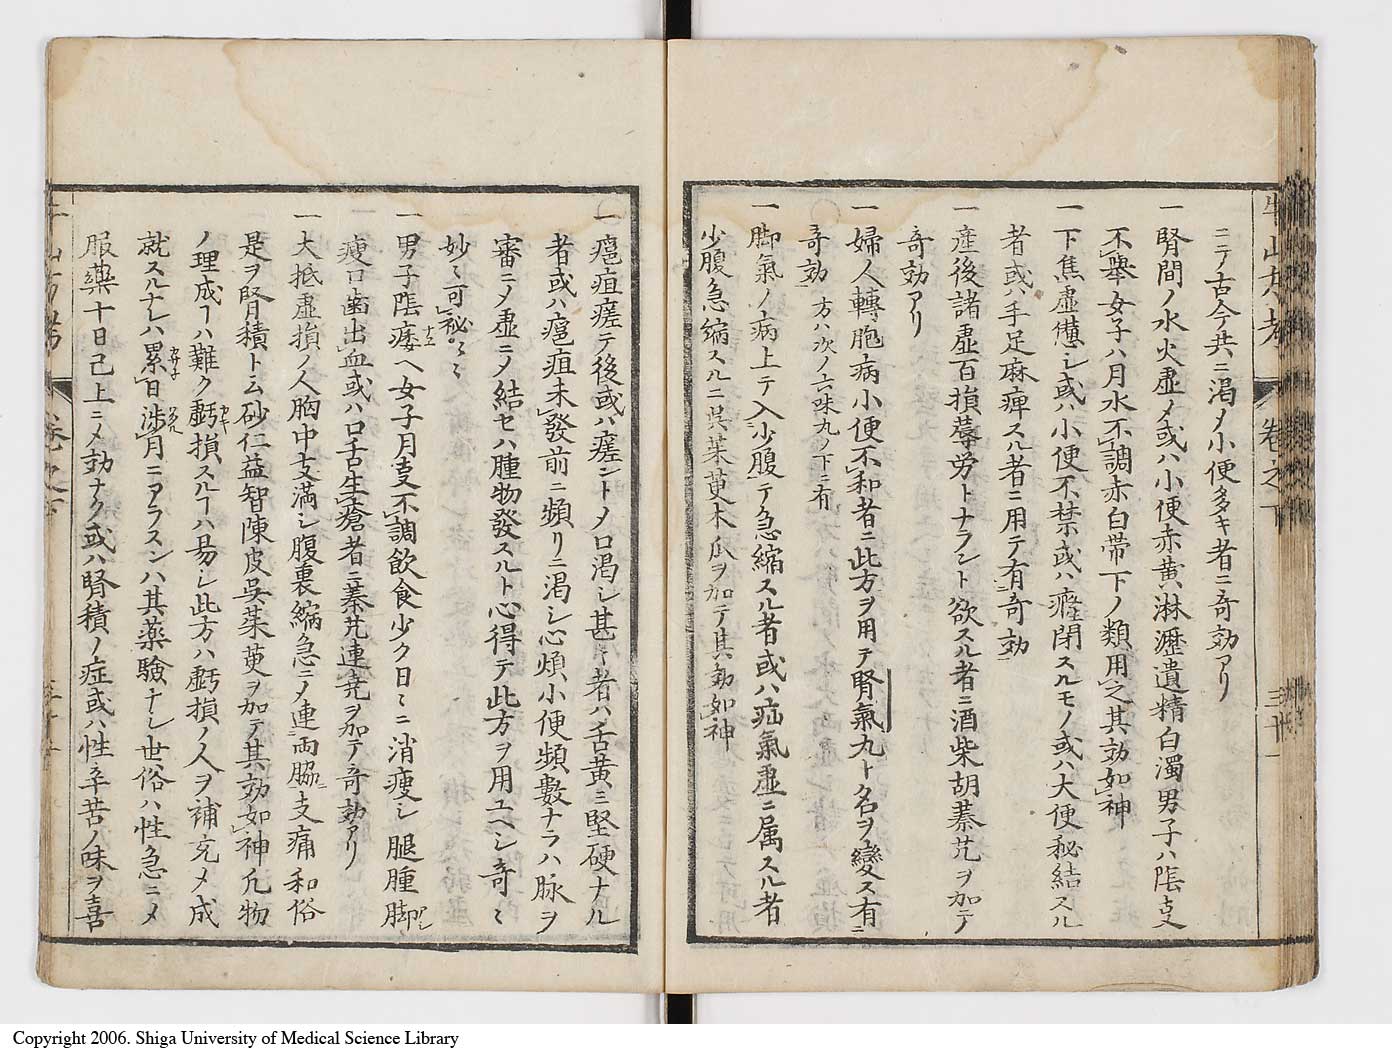 牛山方考 卷之下 三十一
ニテ古今共ニ渇ノ小便多キ者ニ奇効アリ
一 腎間ノ水火虚メ或ハ小便赤黄淋瀝遺精白濁男子ハ陰茎
不舉女子ハ月水不調赤白帶下ノ類用之其効如神
一 下焦虚憊シ或ハ小便不禁或ハ癃閉スルモノ或ハ大便秘結スル
者或ハ手足麻痺スル者ニ用テ有奇効
一 産後諸虚百損蓐労トナラント欲スル者ニ酒柴胡蓁艽ヲ加テ
奇効アリ
一 婦人轉胞病小便不和者ニ此方ヲ用テ腎氣丸ト名ヲ變ス有ニ
奇効 方ハ次ノ六味丸ノ下ニ有
一 脚氣ノ病上テ入少腹テ急縮スル者或ハ疝氣虚ニ属スル者
少腹急縮スルニ呉茱萸木瓜ヲ加テ其効如神
一 癰疽瘥テ後或ハ瘥ントメ口渇シ甚キ者ハ舌黄ニ堅硬ナル
者或ハ癰疽未發前ニ頻リニ渇シ心煩小便頻數ナラハ脉ヲ
審ニメ虚ニメ結セハ腫物發スルト心得テ此方ヲ用ユヘシ奇ミ
妙ミ可秘ミミ
一 男子陰痿ヘ女子月支不調飲食少ク日ミニ消瘦シ腿腫脚
瘦口歯出血或ハ口舌生瘡者ニ蓁艽連尭ヲ加テ奇効アリ
一 大抵虚損ノ人胸中支満シ腹裏縮急ニメ連両脇ニ支痛和俗
是ヲ腎積ト云砂仁益智陳皮呉茱萸ヲ加テ其効如神凢物
ノ理成ーハ難ク虧損スルーハ易シ此方ハ虧損ノ人ヲ補充メ成
就スルナレハ累日渉月ニアラスンハ其薬驗ナシ世俗ハ性急ニメ
服藥十日已上ニメ効ナク或ハ腎積ノ症或ハ性辛苦ノ味ヲ喜